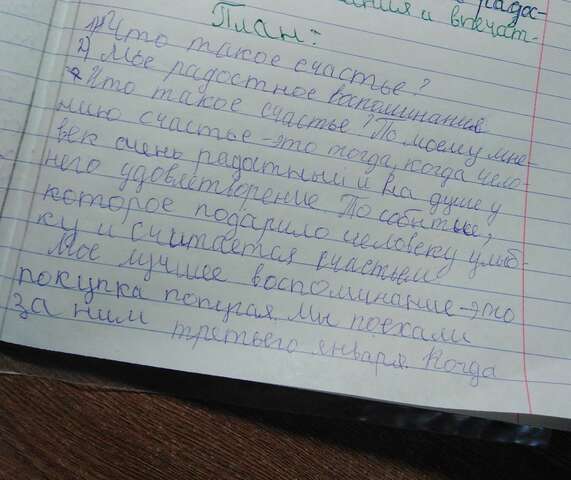 радос-
ния и впечат-
План:
1) Что такое счастье?
2) Моё радостное воспоминание
Что такое счастье? По моему мне-
нию счастье - это тогда, когда чело-
век очень радостный и на душе у
него удовлетворение. То событие,
которое подарило человеку улыб-
ку и считается счастьем.
Мое лучшее воспоминание - это
покупка попугая. Мы поехали
за ним третьего января. Когда